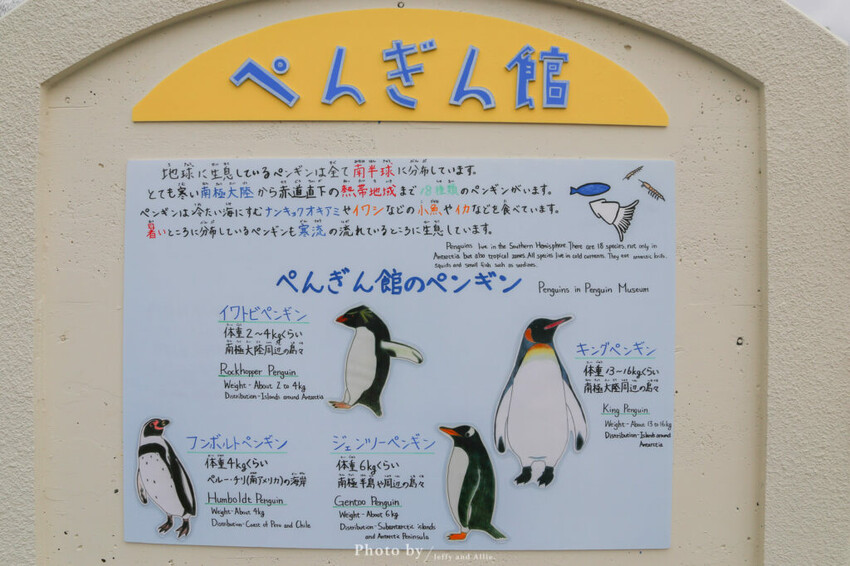 ぺんぎん館
地球に生息しているペンギンは全て南半球に分布しています。
とても寒い南極大陸から赤道直下の熱帯地域まで18種類のペンギンがいます。
ペンギンは冷たい海にすむナンキョクオキアミやイワシなどの小魚、やイカなどを食べています。
暑いところに分布しているペンギンも寒流の流れているところに生息しています。
Penguins live in the Southern Hemisphere. There are 18 species, not only in
Antarctica but also tropical zones. All species live in cold currents. They eat antarctic krills,
squids and small fish such as sardines.
ぺんぎん館のペンギン Penguins in Penguin Museum
イワトビペンギン
体重2~4kgくらい
南極大陸周辺の島々
Rockhopper Penguin
Weight - About 2 to 4kg
Distribution - Islands around Antarctica
キングペンギン
体重13~16kgくらい
南極大陸周辺の島々
King Penguin
Weight - About 13 to 16kg
Distribution - Islands around
Antarctica
フンボルトペンギン
体重4kgくらい
ペルー・チリ(南アメリカ)の海岸
Humboldt Penguin
Weight - About 4kg
Distribution - Coast of Peru and Chile
ジェンツーペンギン
体重6kgくらい
南極半島や周辺の島々
Gentoo Penguin
Weight - About 6kg
Distribution - Subantarctic islands
and Antarctic Peninsula
Photo by / Jeffy and Allie.